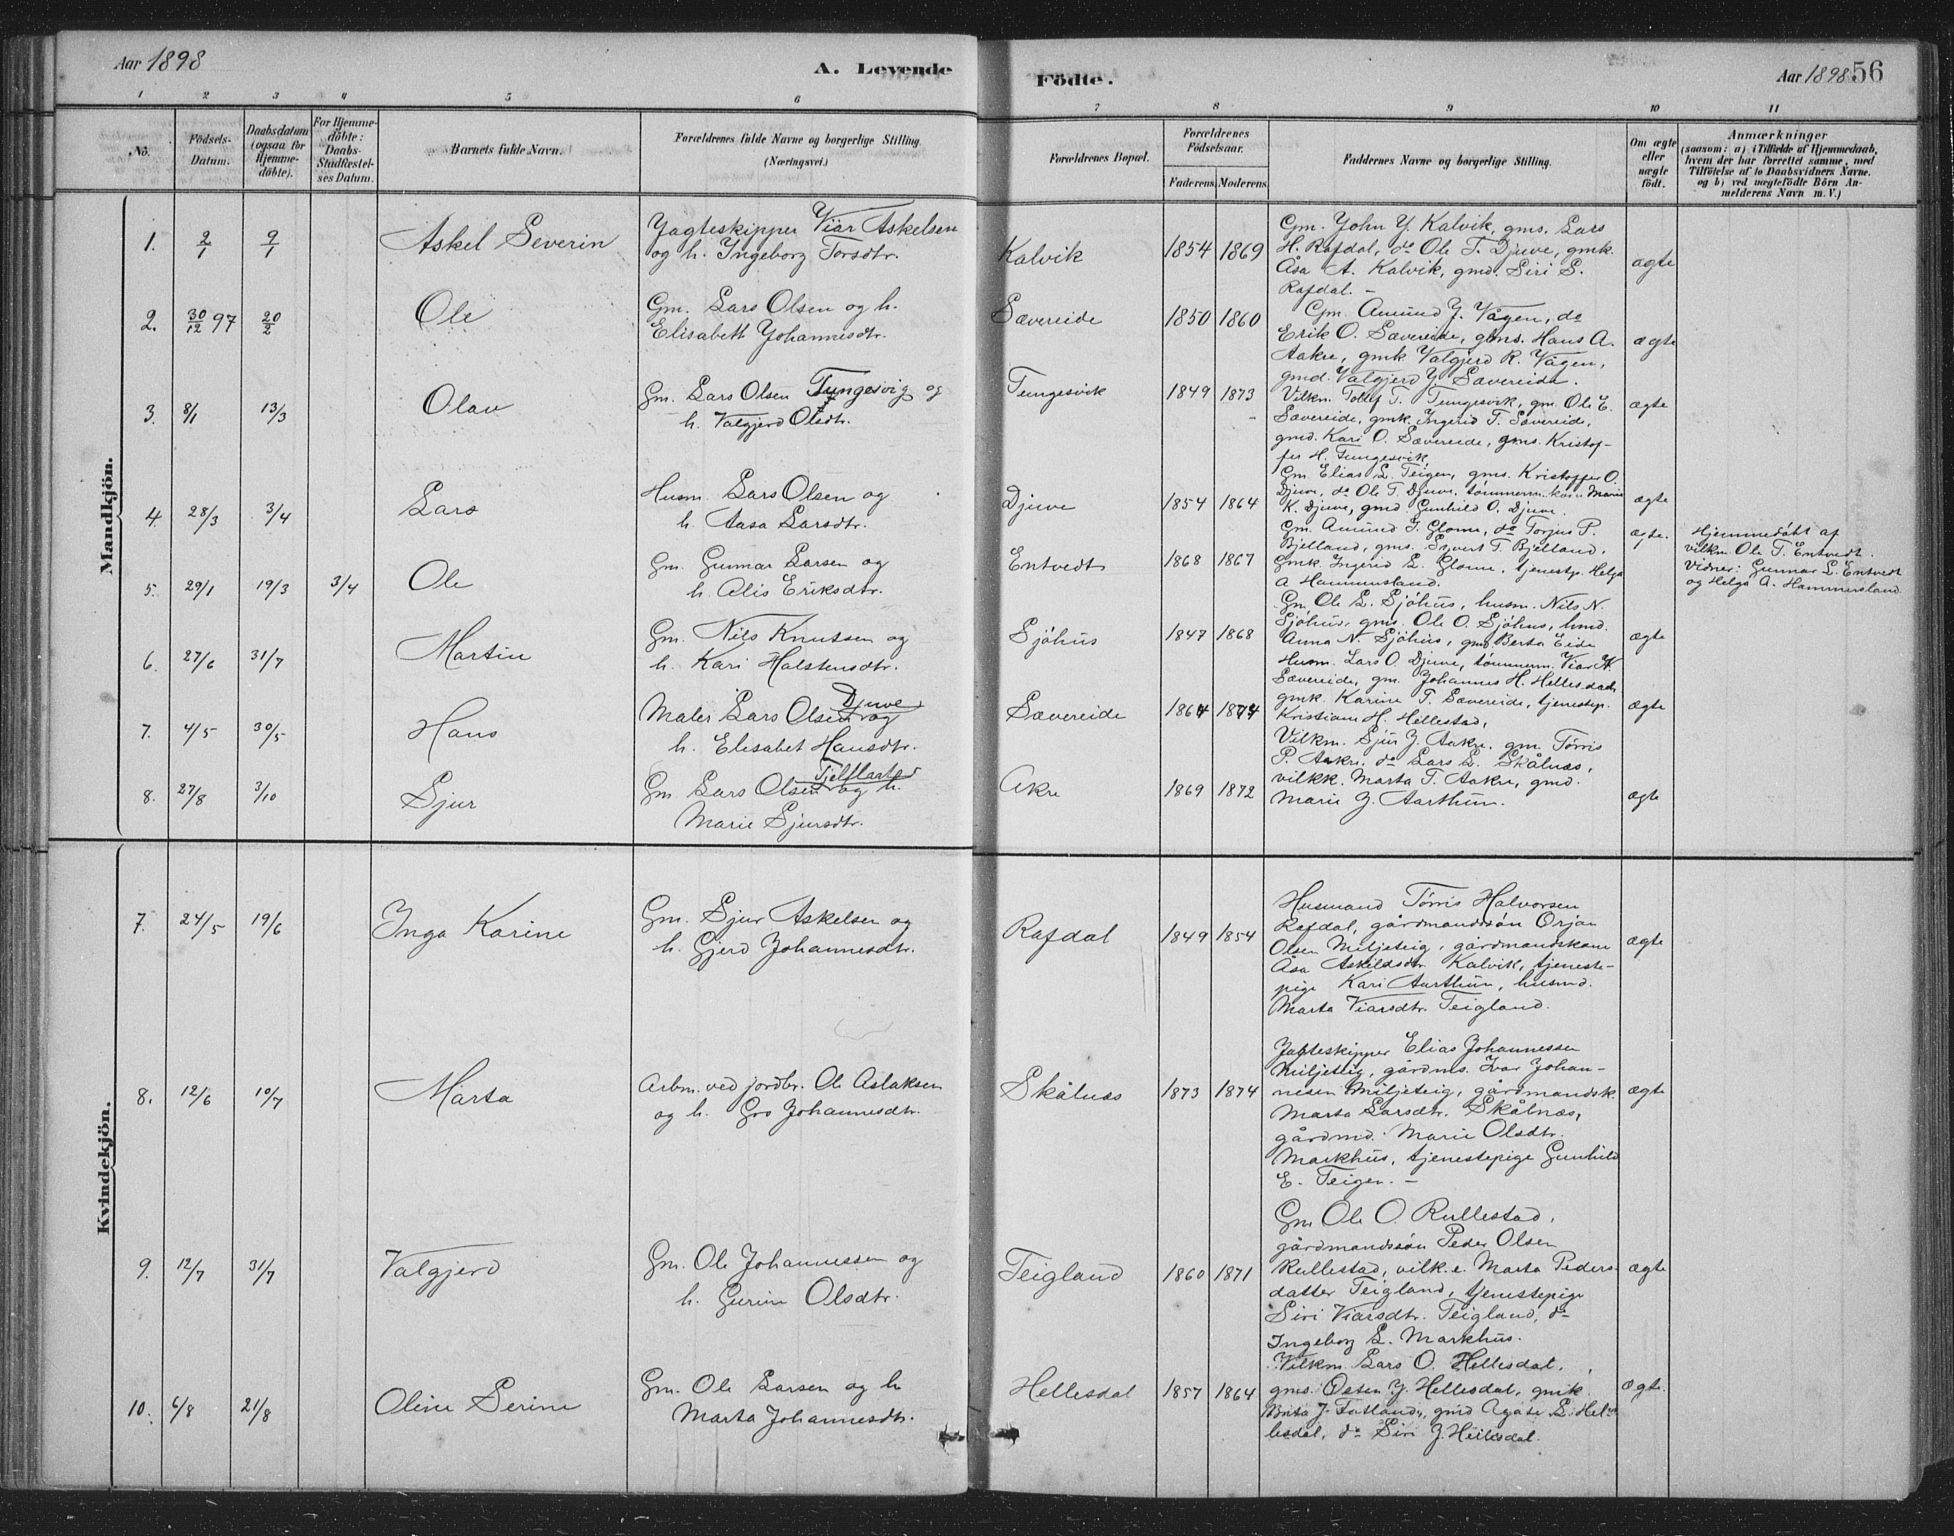 Aar 1898
A. Levende
Födte.
Aar 1898
56
1 2 3 4 5 6 7 8 9 10 11
No.
Födsels-
Datum.
Daabsdatum
(ogsaa for
Hjemme-
döbte).
For Hjemme-
döbte:
Daabs-
Stadfæstel-
ses Datum.
Barnets fulde Navn.
Forældrenes fulde Navne og borgerlige Stilling
(Næringsvei.)
Forældrenes Bopæl.
Forældrenes
Födselsaar.
Faderens Moderens
Faddernes Navne og borgerlige Stilling.
Om ægte
eller
uægte
født.
Anmærkninger
(saasom: a) i Tilfælde af Hjemmedaab,
hvem der har forrettet samme, med
Tilföielse af to Daabsvidners Navne.
og b) ved uægtefödte Börn An-
melderens Navn m. V.)
Mandkjön.
1. 2/1 9/1 Askel Severin
Jagteskipper Viar Askelsen
og h. Ingeborg Torsdtr.
Kalvik 1854 1869
Gm. John Y. Kalvik, gms. Lars
H. Rafdal, do Ole T. Djuve, gmk.
Åsa A. Kalvik, gmd. Siri S.
Rafdal. –
ægte
2. 30/12 97 20/2 Ole
Gm. Lars Olsen og h.
Elisabeth Johannesdtr.
Sævereide 1850 1860
Gm. Amund J. Vågen, do
Erik O. Sævereide, gms. Hans A.
Aakre, gmk. Valgjerd R. Vågen,
gmd. Valgjerd Y. Sævereide.
ægte
3. 8/1 13/3 Olav
Gm. Lars Olsen Tungesvig og
h. Valgjerd Olsdtr.
Tungesvik 1849 1873
Vilkm. Tollef T. Tungesvik, gm. Ole E.
Sævereide, gmk. Ingerid T. Sævereide,
gmd. Kari O. Sævereide, gms. Kristof-
fer H. Tungesvik
ægte
4. 28/3 3/4 Lars
Husm. Lars Olsen og
h. Aasa Larsdtr.
Djuve 1854 1864
Gm. Elias L. Teigen, gms. Kristoffer O.
Djuve, do Ole T. Djuve, tømmerm. kone Marie
K. Djuve, gmd. Gunhild O. Djuve.
ægte
5. 29/1 19/3 3/4 Ole
Gm. Gunnar Larsen og
h. Alis Eriksdtr.
Entvedt 1868 1867
Gm. Amund J. Glome, do Torjus P.
Bjelland, gms. Sivert T. Bjelland,
Gmk. Ingerid L. Glome, tjenestp. Helga
A. Hammersland.
ægte.
Hjemmedøbt af
vilkm. Ole T. Entvedt.
Vidner: Gunnar L. Entvedt
og Helga A. Hammersland
6. 27/6 31/7 Martin
Gm. Nils Knutsen og
h. Kari Halstensdtr.
Sjöhus 1847 1868
Gm. Ole L. Sjöhus, husm. Nils N.
Sjöhus, gms. Ole O. Sjöhus, hmd.
Anna N. Sjöhus, gmd Berta Eide
ægte
7. 4/5 30/5 Hans
Maler Lars Olsen Djuve og
h. Elisabet Hansdtr.
Sævereide 1864 1874
Husm. Lars O. Djuve, tømmerm. Viar N.
Sævereide, gm. Johannes H. Hellestad,
gmk. Karine T. Sævereide, tjenestep.
Kristiane H. Hellestad,
ægte
8. 27/8 3/10 Sjur
Gm. Lars Olsen Tjelflaated og h.
Marie Sjursdtr.
Akre 1869 1872
Vilkm. Sjur J. Aakre. gm. Tørris
P. Aakre, do Lars L. Skålnæs,
vilkk. Marta T. Aakre, gmd.
Marie J. Aarthun.
ægte
Kvindekjön.
7. 24/5 19/6 Inga Karine
Gm. Sjur Askelsen og
h. Gjerd Johannesdtr.
Rafdal 1849 1854
Husmand Tørris Halvorsen
Rafdal, gårdmandssøn Orjan
Olsen Miljeteig, gårdmandskone
Åsa Askildsdtr. Kalvik, tjeneste-
pige Kari Aarthun, husmd.
Marta Viarsdtr. Teigland.
ægte
8. 12/6 10/7 Marta
Arbm. ved jordbr. Ole Aslaksen
og h. Gro Johannesdtr.
Skålnæs 1873 1874
Jagteskipper Elias Johannessen
Miljeteig, gårdms. Ivar Johan-
nesen Miljeteig, gårdmandsk.
Marta Larsdtr. Skålnæs,
gårdmd. Marie Olsdtr.
Markhus, tjenestepige Gunhild
E. Teigen. –
ægte
9. 12/7 31/7 Valgjerd
Gm. Ole Johannessen og
h. Gurine Olsdtr.
Teigland 1860 1871
Gm. Ole O. Rullestad,
gårdmandssön Peder Olsen
Rullestad, vilk.e. Marta Peders-
datter Teigland, tjenestepige
Siri Viarsdtr. Teigland, do
Ingeborg L. Markhus.
ægte
10. 6/8 21/8 Oline Serine
Gm. Ole Larsen og h
Marta Johannesdtr.
Hellesdal 1857 1864
Vilkm. Lars O. Hellesdal,
gms. Østen J. Hellesdal, gmk.
Brita J. Fatland, gmd Agate L. Hel-
lesdal, do Siri J. Hellesdal.
ægte.